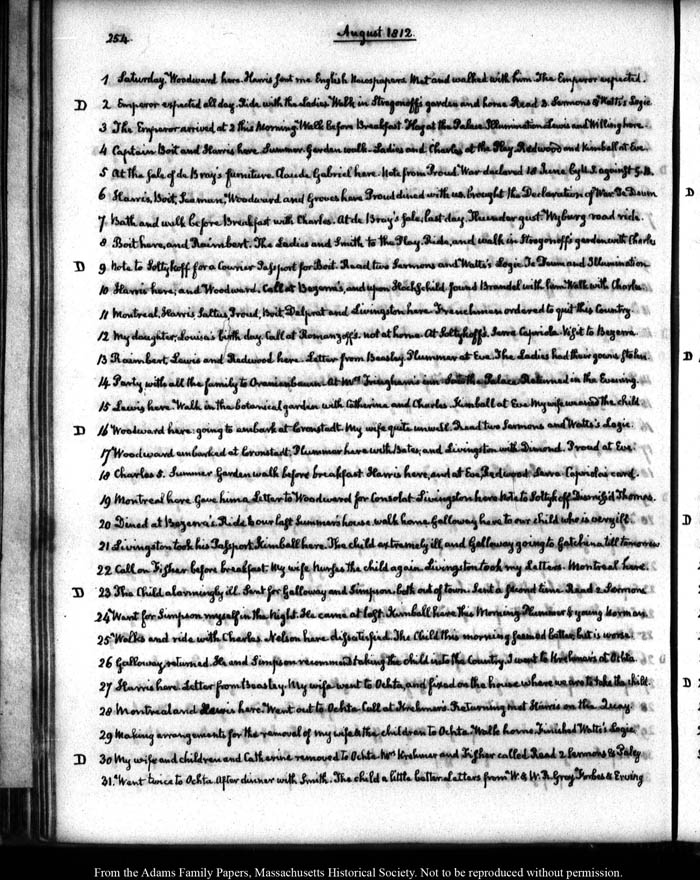 254.
August 1812.
1 Saturday. Woodward here. Harris sent me English Newspapers Met and walked with him The Emperor expected.
D 2 Emperor expected all day. Ride with the Ladies. Walk in Strogonoff's garden and home Read 2 Sermons & Watts's Logic
3 The Emperor arrived at 2 this Morning. Walk before Breakfast. Flag at the Palace. Illumination Lewis and Willing here.
4 Captain Boit and Harris here. Summer Garden walk. Ladies and Charles at the Play. Redwood and Kimball at Eve.
5 At the Sale of de Bray's furniture. Claude Gabriel here. Note from Proud. War declared 18 June by U.S. against G.B.
6 Harris, Boit, Leamen, Woodward and Groves here Proud dined with us, brought the Declaration of War Te Deum
7 Bath and walk before Breakfast with Charles. At de Bray's Sale, last day. Thunder gust. Wyburg road ride.
8 Boit here, and Raimbert. The Ladies and Smith to the Play. Ride, and walk in Strogonoff's garden with Charles
D 9 Note to Soltykoff for a Courier Passport for Boit. Read two Sermons and Watts's Logic Te Deum and Illumination
10 Harris here; and Woodward. Call at Bezerra's, and upon Hochschild found Brandel with him Walk with Charles
11 Montreal, Harris Saltus, Proud, Boit, Delprat and Livingston here. Frenchmen ordered to quit this Country.
12 My daughter, Louisa's birth day. Call at Romanzoff's. not at home. At Soltykoff's. Serra Capriola. Visit to Bezerra
13 Raimbert, Lewis and Redwood here. Letter from Beasley Plummer at Eve. The Ladies had their gowns stolen
14 Party with all the family to Oranienbaum. At Mrs inn Saw the Palace Returned in the Evening.
15 Lewis here. Walk in the botanical garden with Catherine and Charles. Kimball at Eve My wife weaned the child
D 16 Woodward here: going to embark at Cronstadt. My wife quite unwell. Read two Sermons and Watts's Logic.
17 Woodward embarked at Cronstadt; Plummer here with Bates; and Livingston with Dimond. Proud at Eve
18 Charles 5. Summer Garden walk before breakfast. Harris here, and at Eve, Redwood. Serra Capriola's card.
19 Montreal here Gave him a Letter to Woodward for Consolat. Livingston here Note to Soltykoff Dismiss'd Thomas.
20 Dined at Bezerra's. Ride to our last Summer's house. walk home. Galloway here to our child who is very ill.
21 Livingston took his Passport. Kimball here. The child extremely ill, and Galloway going to Gatchina till tomorrow
22 Call on Fisher before breakfast. My wife Nurses the child again. Livingston took my Letters. Montreal here.
D 23 The Child alarmingly ill. Sent for Galloway and Simpson, both out of town. Sent a second time Read 2 Sermons
24 Went for Simpson myself in the Night. He came at last. Kimball here this Morning Plummer & young Norman
25 Walks and ride with Charles. Nelson here dissatisfied. The Child this morning seemed better, but is worse.
26 Galloway returned. He and Simpson recommend taking the child into the Country. I went to Krehmer's at Ochta.
27 Harris here. Letter from Beasley. My wife went to Ochta, and fixed on the house where we are to take the child.
28 Montreal and Lewis here. Went out to Ochta Call at Krehmer's. Returning met Harris on the Quay
29 Making arrangements for the removal of my wife & the children to Ochta. Walk home. Finished Watts's Logic
D 30 My wife and children and Catherine removed to Ochta. Mrs Krehmer and Fisher called Read 2 Sermons & Paley
31. Went twice to Ochta. After dinner with Smith. The child a little better. Letters from W. & W. R. Gray, Forbes & Erving
D
D
D
D
From the Adams Family Papers, Massachusetts Historical Society. Not to be reproduced without permission.